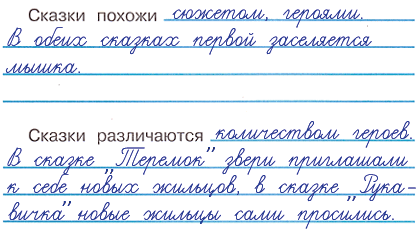 Сказки похожи сюжетом, героями.
В обеих сказках первой заселяется
мышка.
Сказки различаются количеством героев.
В сказке "Теремок" звери приглашали
к себе новых жильцов, в сказке "Рука-
вичка" новые жильцы сами просились.